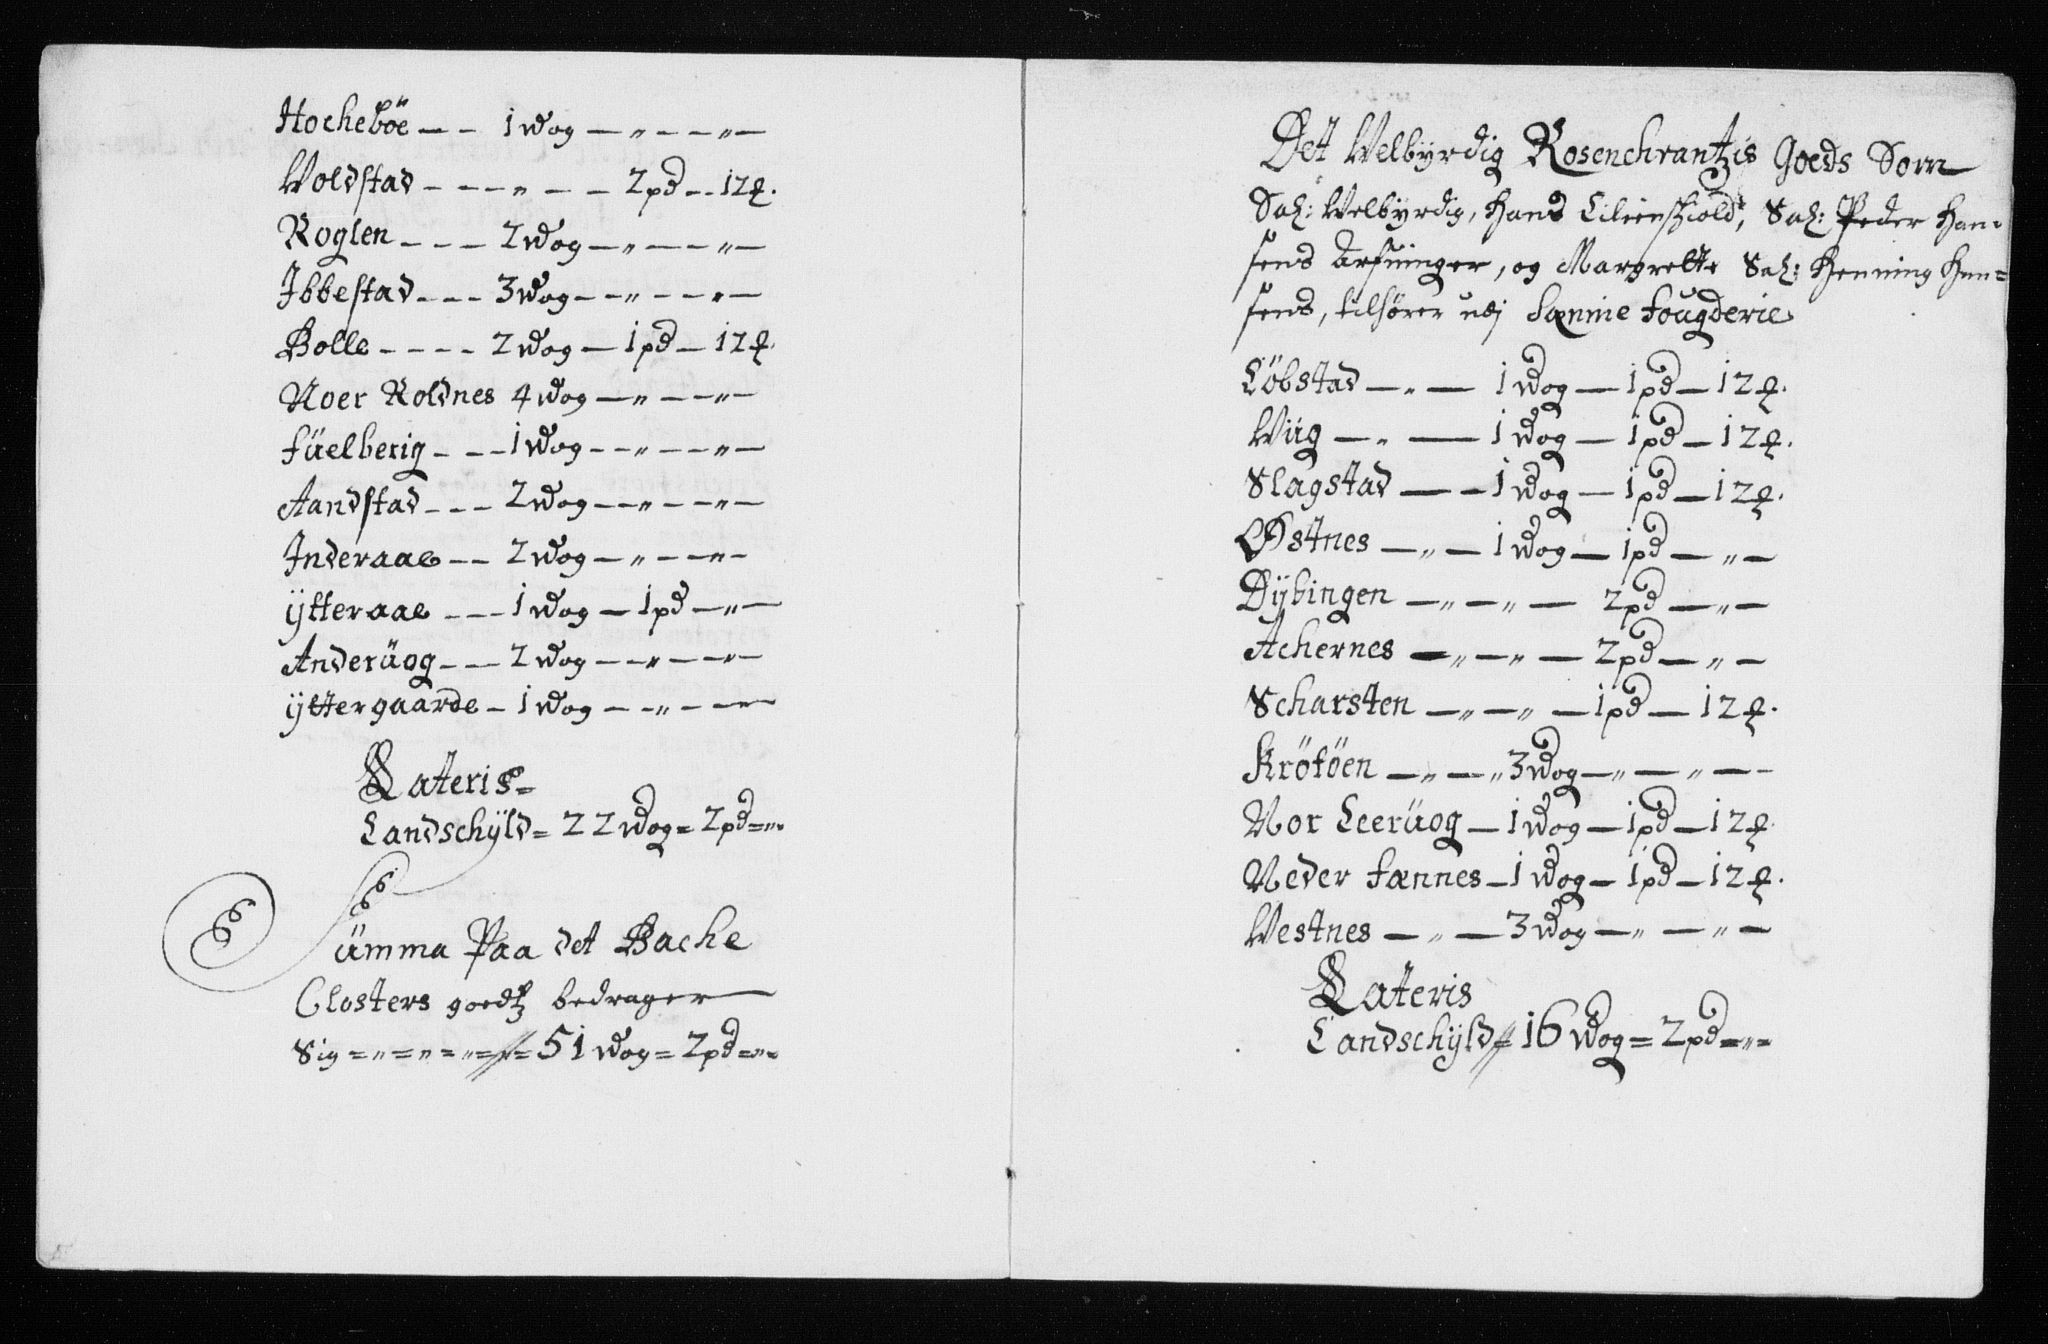 Hocheböe — – 1 wog — „ — — „ —
Woldstad - - - „ - — 2 pd — 12 ℔.
Roglen - - — 2 wog — „ — — „ —
Ibbestad - - - 3 wog — - „ — — „ —
Bolle - - - - 2 wog — 1 pd — 12 ℔.
Noer Roldnes 4 wog — „ — — „ —
Füelberig - - — 1 wog — - „ — — „ —
Aandstad - - - 2 wog — - „ — — „ —
Inderaae — – 2 wog — „ — — „ —
ÿtteraae - - — 1 wog — 1 pd — „ —
Anderüog - - — 2 wog — — „ — — „ —
ÿttergaarde — 1 wog — — „ — — „ —
Lateris =
Landschÿld = 22 wog = 2 pd = „ =
Sümma Paa det Bache
Closters goedtz bedrager
Sig = „ = „ = „ = „ = 51 wog = 2 pd = „ =
Det Welbyrdig Rosenchrantzis Goeds Som
Sal: Welbyrdig, Hans Lilienskiold, Sal: Peder Han-
sens Arfuinger, og Margrette Sal: Henning Han=
sens, tilhører udj Sænnie Fougderie
Löbstad — „ — 1 wog — 1 pd — 12 ℔.
Wiig — „ — 1 wog — 1 pd — 12 ℔.
Slagstad — — 1 wog — 1 pd — 12 ℔.
Østnes — „ — 1 wog — 1 pd — „ —
Dÿbingen — „ — „ — 2 pd — „ —
Achernes — „ — „ — 2 pd — „ —
Scharsten — „ — „ — 1 pd — 12 ℔.
Kröföen — „ — „ 3 wog — „ — „ — –
Nor Leerüog — 1 wog — 1 pd — 12 ℔.
Neder Fænnes — 1 wog — 1 pd — 12 ℔.
Westnes — „ — 3 wog — „ — „ —
Lateris
Landschÿld = 16 wog = 2 pd = „ =